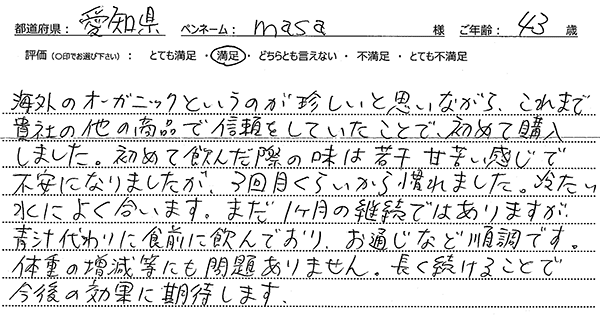 都道府県： 愛知県 ペンネーム： masa 様 ご年齢： 43 歳
評価（○印でお選び下さい） とても満足 ・ 満足 ・ どちらとも言えない ・ 不満足 ・ とても不満足
海外のオーガニックというのが珍しいと思いながら、これまで
貴社の他の商品で信頼をしていたことで、初めて購入
しました。初めて飲んだ際の味は若干甘苦い感じで
不安になりましたが、3回目くらいから慣れました。冷たい
水によく合います。まだ1ヶ月の継続ではありますが、
青汁代わりに食前に飲んでおり、お通じなど順調です。
体重の増減等にも問題ありません。長く続けることで
今後の効果に期待します。